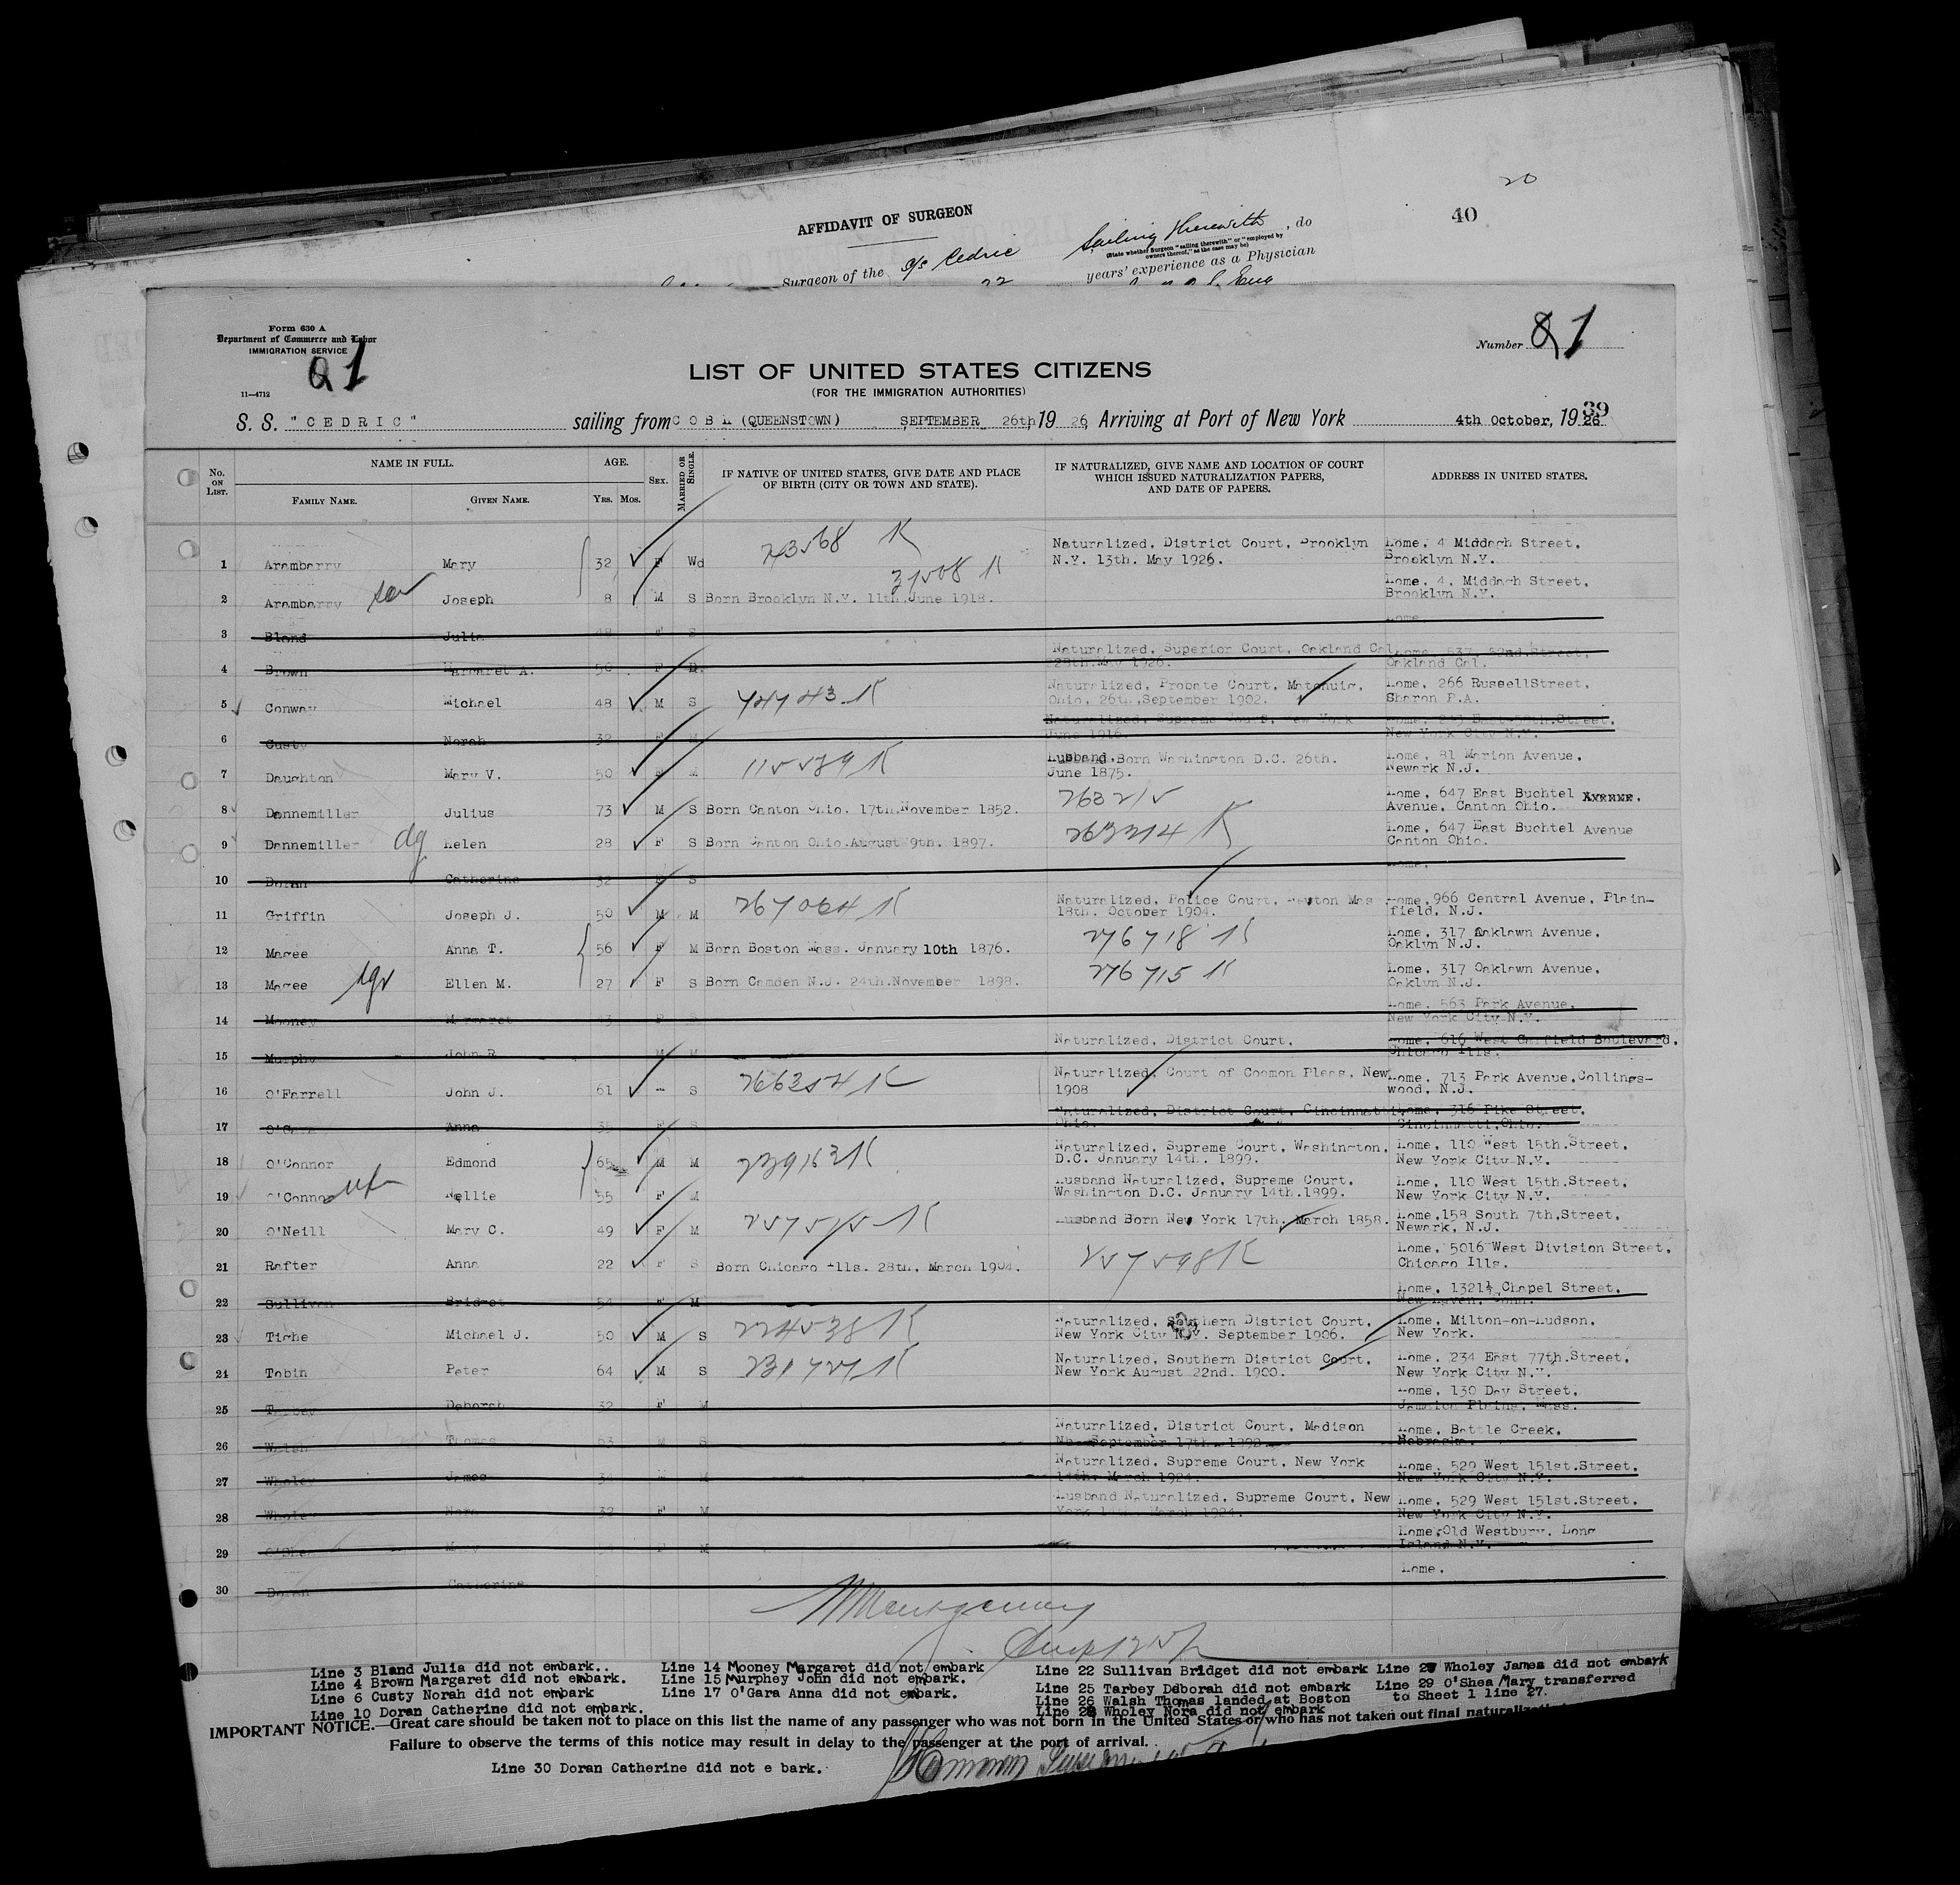 20
40
AFFIDAVIT OF SURGEON
Surgeon of the S/S Cedric Sailing therewith, do
(State whether Surgeon "sailing therewith" or "employed by
owners thereof," as the case may be)
22 years' experience as a Physician
Form 630 A
Department of Commerce and Labor
IMMIGRATION SERVICE
11—4712
Number
LIST OF UNITED STATES CITIZENS
(FOR THE IMMIGRATION AUTHORITIES)
39
S. S. "CEDRIC" sailing from COBH (QUEENSTOWN) SEPTEMBER 26th, 19 26, Arriving at Port of New York 4th October, 19 26
No. ON LIST. NAME IN FULL. FAMILY NAME. GIVEN NAME. AGE. YRS. MOS. SEX. MARRIED OR SINGLE. IF NATIVE OF UNITED STATES, GIVE DATE AND PLACE OF BIRTH (CITY OR TOWN AND STATE). IF NATURALIZED, GIVE NAME AND LOCATION OF COURT WHICH ISSUED NATURALIZATION PAPERS, AND DATE OF PAPERS. ADDRESS IN UNITED STATES.
1 Aramberry Mary 32 F Wd Naturalized, District Court, Brooklyn N.Y. 13th. May 1926. Home, 4 Middagh Street, Brooklyn N.Y.
2 Aramberry son Joseph 8 M S Born Brooklyn N.Y. 11th June 1918. Home, 4, Middagh Street, Brooklyn N.Y.
3 Bland Julia 48 F S Home
4 Brown Margaret A. 56 F D. Naturalized, Superior Court, Oakland Cal. 28th. May 1926. Home, 537, 52nd. Street, Oakland Cal.
5 Conway Michael 48 M S Naturalized, Probate Court, Ohio, 26th, September 1902. Home, 266 RussellStreet, Sharon P.A.
6 Custy Norah 32 F M Naturalized, Supreme Court, New York June 1916. Home, East 50th. Street, New York City N.Y.
7 Daughton Mary V. 50 F M 115579 K Husband Born Washington D.C. 26th. June 1875. Home, 81 Marion Avenue, Newark N.J.
8 Dannemiller Julius 73 M S Born Canton Ohio, 17th, November 1852. 263215 Home, 647 East Buchtel Avenue, Canton Ohio.
9 Dannemiller dg Helen 28 F S Born Canton Ohio, August 9th. 1897. 263214 K Home, 647 East Buchtel Avenue Canton Ohio.
10 Doran Catherine 32 F S Home.
11 Griffin Joseph J. 50 M M 267064 K Naturalized, Police Court, Newton Mas 18th. October 1904. Home, 966 Central Avenue, Plain-field, N.J.
12 Magee Anna T. 56 F M Born Boston Mass. January 10th 1876. 276718 K Home, 317 Oaklawn Avenue, Oaklyn N.J.
13 Magee Ellen M. 27 F S Born Camden N.J. 24th. November 1898. 276715 K Home, 317 Oaklawn Avenue, Oaklyn N.J.
14 Mooney Margaret 43 F S Home, 563 Park Avenue, New York City N.Y.
15 Murphy John R M M Naturalized, District Court. Home, 616 West Garfield Boulevard, Chicago Ills.
16 O'Farrell John J. 61 S 266354 K Naturalized, Court of Common Pleas, New 1908 Home, 713 Park Avenue, Collings-wood, N.J.
17 O'Gara Anna 35 F S Naturalized, District Court, Cincinnatti Ohio. Home, 316 Pike Street, Cincinnatti, Ohio.
18 O'Connor Edmond 65 M M 239163 K Naturalized, Supreme Court, Washington, D.C. January 14th. 1899. Home, 110 West 15th. Street, New York City N.Y.
19 O'Connor wf Nellie 55 F M Husband Naturalized, Supreme Court, Washington D.C. January 14th. 1899. Home, 110 West 15th. Street, New York City N.Y.
20 O'Neill Mary C. 49 F M 257515 K Husband Born New York 17th. March 1858. Home, 158 South 7th, Street, Newark, N.J.
21 Rafter Anna 22 F S Born Chicago Ills. 28th. March 1904. 257598 K Home, 5016 West Division Street, Chicago Ills.
22 Sullivan Bridget 54 F M Home, 1321½ Chapel Street, New Haven, Conn.
23 Tighe Michael J. 50 M S 224538 K Naturalized, Southern District Court, New York City N.Y. September 1906. Home, Milton-on-Hudson, New York.
24 Tobin Peter 64 M S 231727 K Naturalized, Southern District Court, New York August 22nd. 1900. Home, 234 East 77th. Street, New York City N.Y.
25 Tarbey Deborah 32 F M Home, 130 Day Street, Jamaica Plains, Mass.
26 Walsh Thomas 63 M S Naturalized, District Court, Madison Nb. September 17th. 1898. Home, Battle Creek, Nebraska.
27 Wholey James 34 M Naturalized, Supreme Court, New York 14th. March 1924. Home, 529 West 151st. Street, New York City N.Y.
28 Wholey Nora 32 F M Husband Naturalized, Supreme Court, New York 14th. March 1924. Home, 529 West 151st. Street, New York City N.Y.
29 O'Shea Mary F M Home, Old Westbury, Long Island N.Y.
30 Doran Catherine Home.
Line 3 Bland Julia did not embark..
Line 4 Brown Margaret did not embark.
Line 6 Custy Norah did not embark
Line 10 Doran Catherine did not embark.
Line 14 Mooney Margaret did not embark
Line 15 Murphey John did not embark.
Line 17 O'Gara Anna did not embark.
Line 22 Sullivan Bridget did not embark
Line 25 Tarbey Deborah did not embark
Line 26 Walsh Thomas landed at Boston
Line 28 Wholey Nora did not embark
Line 27 Wholey James did not embark
Line 29 O'Shea Mary transferred
to Sheet 1 line 27.
IMPORTANT NOTICE.—Great care should be taken not to place on this list the name of any passenger who was not born in the United States or who has not taken out final
Failure to observe the terms of this notice may result in delay to the passenger at the port of arrival.
Line 30 Doran Catherine did not e bark.